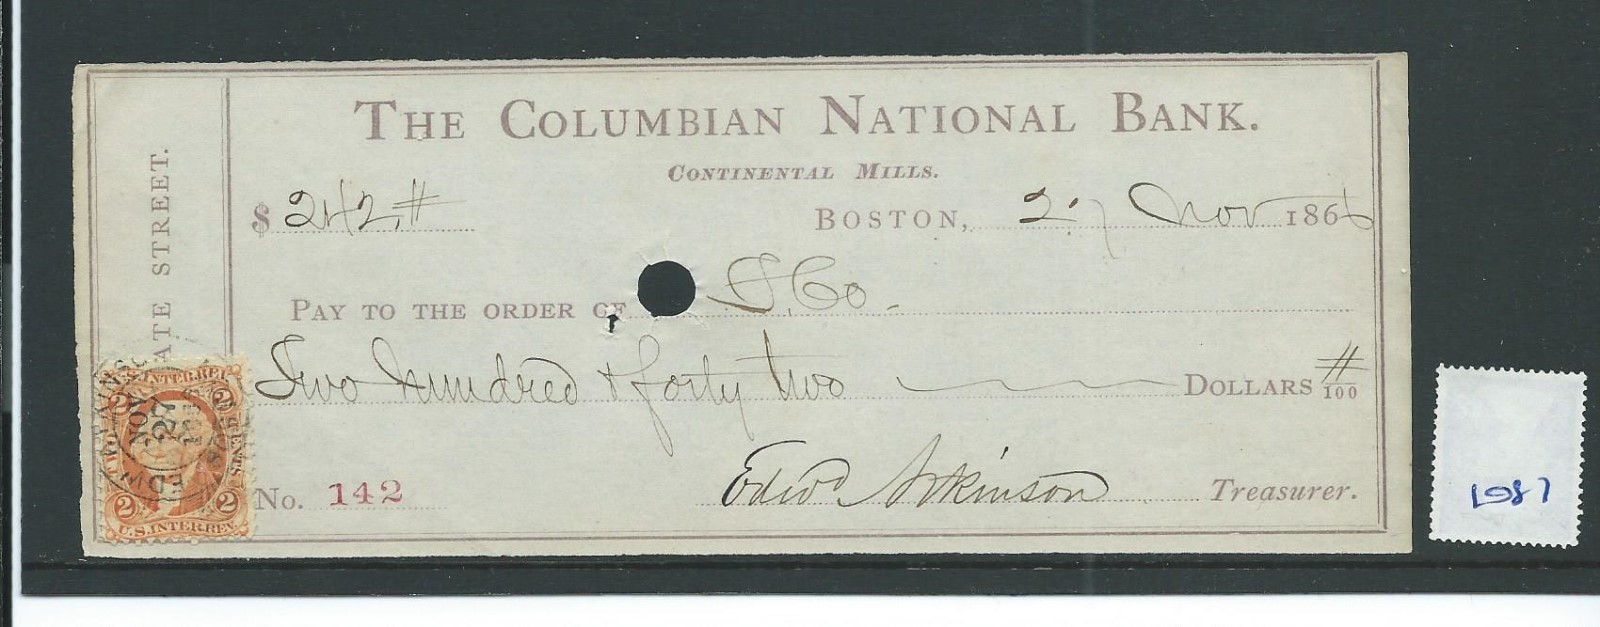 THE COLUMBIAN NATIONAL BANK.
CONTINENTAL MILLS.
$ 242.#
BOSTON, 27 Nov 1866
PAY TO THE ORDER OF Co.
Two Hundred & forty two DOLLARS #/100
No. 142
Edwd Atkinson Treasurer.
ATE STREET.
U.S. INTER. REV.
2 2
2 2
U.S. INTER. REV.
NOV
27
EDW ATKINSON
1087